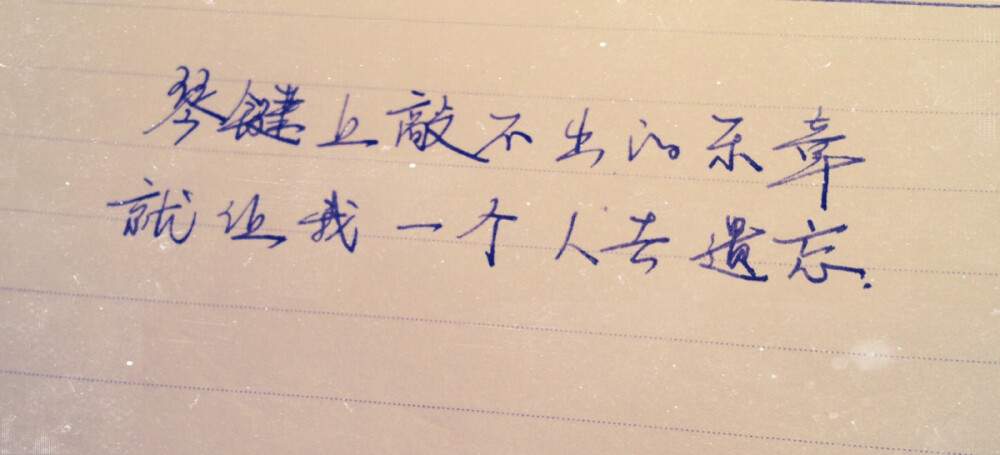 琴键上敲不出的乐章
就让我一个人去遗忘.